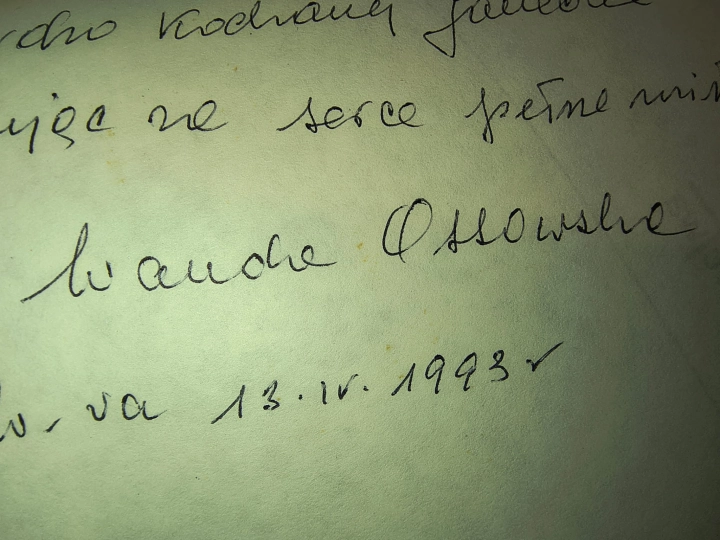 rdzo kochanej
ując za serce pełne
Wanda Ossowska
W-va 13.IV.1993r